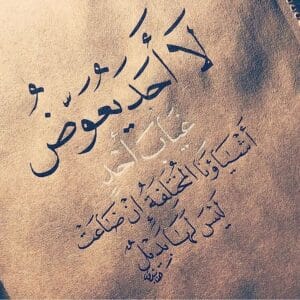 لَا أَحَد يُعَوِّضُ
غِيَابَ أَحَدٍ
أَشْيَاؤُنَا المُخْتَلِفَةُ إنْ ضَاعَتْ
لَيْسَ لَهَا بَدِيلٌ